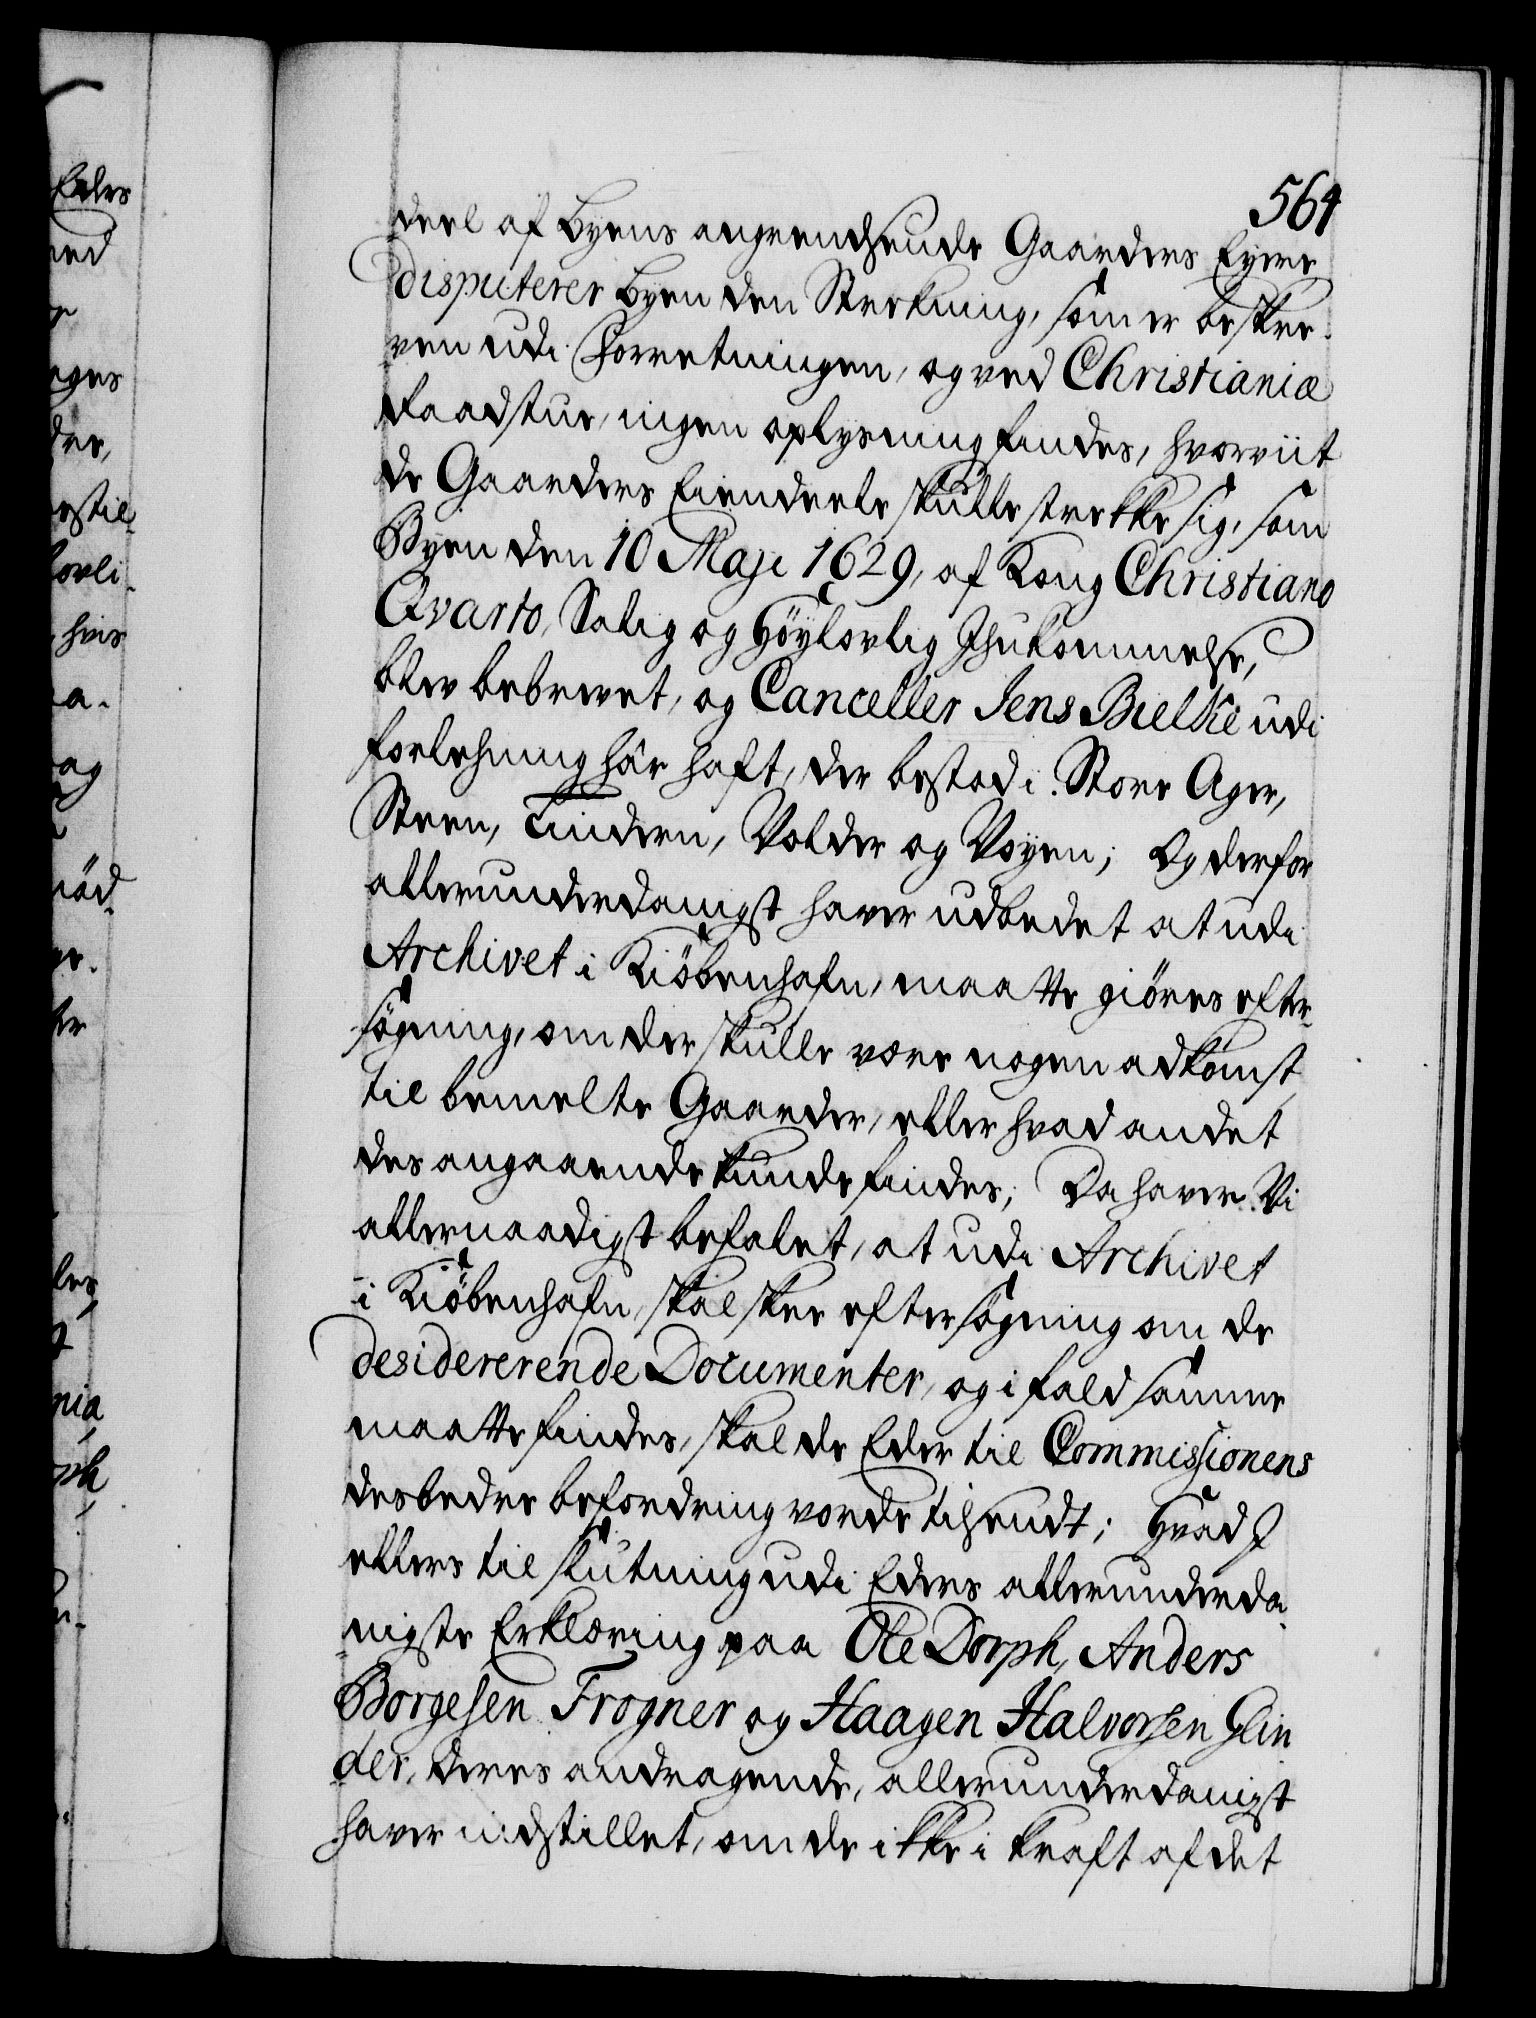 564
deel af Byens angrendsende Gaarders Eyere
disputerer Byen den Strekning, som er beskre¬
ven udi Forretningen, og ved Christianiæ
Raadstue, ingen oplysning findes, hvorviit
de Gaarders Eiendeele skulle strekke sig, som
Byen den 10 Maji 1629, af Kong Christiano
Qvarto, Salig og Høylovlig Ihukommelse,
blev bebrevet, og Canceller Jens Bielke udi
forlehning har haft, der bestod i Store Ager,
Steen, Lindern, Volder og Voyen; Og derfor
allerunderdanigst haver udbedet at udi
Archivet i Kiöbenhafn, maatte giöres efter¬
søgning, om der skulle være nogen adkomst
til bemelte Gaarder, eller hvad andet
des angaaende kunde findes; Da haver Vi
allernaadigst befalet, at udi Archivet
i Kiöbenhafn, skal skee eftersøgning om de
desidererende Documenter, og ifald samme
maatte findes, skal de Eder til Commissionens
desbedre befordring vorde tilsendt; Hvad I
ellers til slutning udi Eders allerunderda¬
nigste Erklæring paa Ole Dorph, Anders
Borgesen Frogner og Haagen Halvorsen Blin
der, deres andragende, allerunderdanigst
haver indstillet, om de ikke i kraft af det
Eders
ned
eges
der,
estil¬
lovli¬
, hvis
a.
ag
nöd¬
nia,